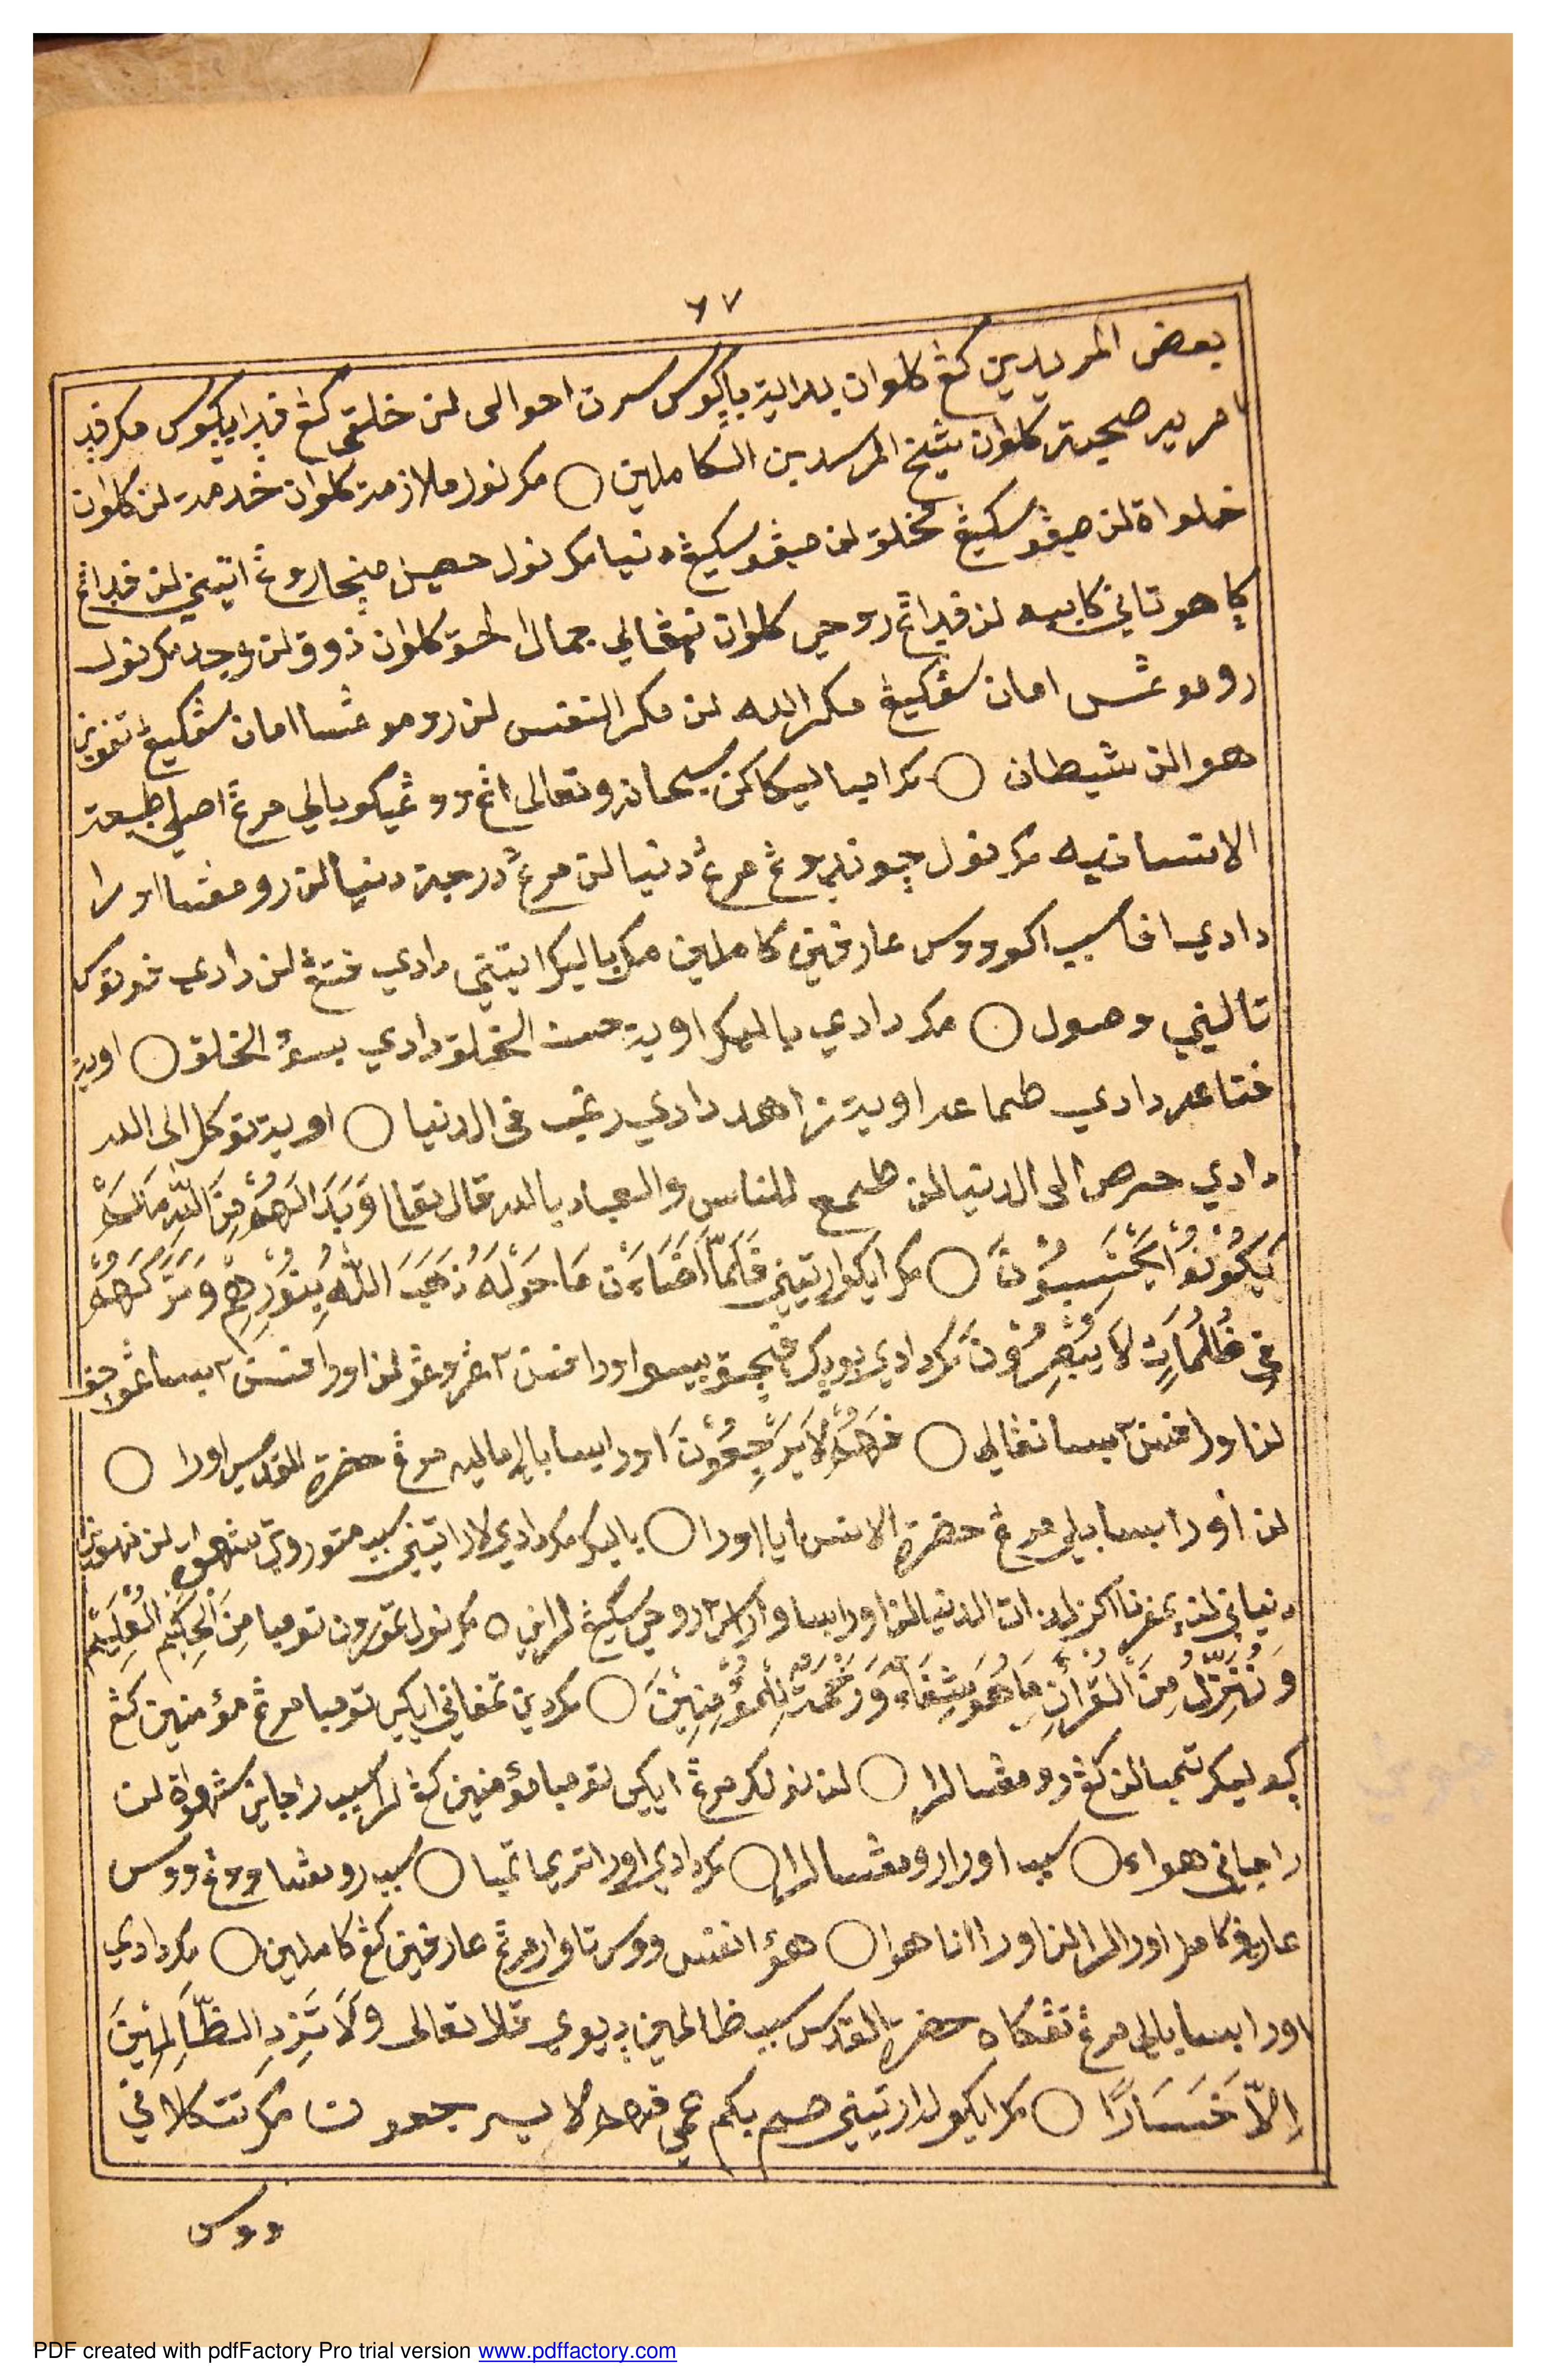 ٦٧
بعض المريدين كڠ كلوان بداية باڮوس سرت احوالى لن خلقى كڠ ڤدا ايكو مك ڤد
مريد صحبة كلوان شيخ المرشدين الكاملين ○ مك نولي ملازمة كلوان خدمة لن كلوان
خلواة لن ميڠو سكيڠ مخلق لن ميڠو سكيڠ دنيا مك نولي حصيل منجاروڠ اتيني لن ڤداڠ
كاهوتاني كابيه لن ڤداڠ روحي كلوان نيڠالي جمال الحق كلوان ذوق لن وجد مك نولي
رومڠسا امان سڠكيڠ مكر الله لن مكر النفس لن رومڠسا امان سڠكيڠ
هوا لن شيطان ○ مك امباليكاكن سبحانه وتعالى اڠ ووڠ ايكو بالي مرڠ اصلي طبيعة
الانسانيه مك نولي چوندوڠ مرڠ دنيا لن مرڠ درجة دنيا لن رومڠسا اورا
دادي اڤا سبب اكو ووس عارفين كاملين مك باليك اتيني دادي ڤتڠ لن دادي ڤدوت
تاليني وصول ○ مك دادي باليك اويت حسن الخلق دادي بسوء الخلق ○ اويت
قناعه دادي طماعه اويت زاهد دادي رغب فى الدنيا ○ اويت توكل الى الله
دادي حرص الى الدنيا لن طمع للناس والعياذ بالله قال تعالى وَبَدَا لَهُمْ مِنَ اللّٰهِ مَا لَمْ
يَكُوْنُوْا يَحْتَسِبُوْنَ ○ مك ايكو ارتيني فَلَمَّا اَضَاءَتْ مَا حَوْلَهُ ذَهَبَ اللّٰهُ بِنُوْرِهِمْ وَتَرَكَهُمْ
فِى ظُلُمَاتٍ لَا يُبْصِرُوْنَ مك دادي بودك ڤيچق بيسو اورا ڤيسن٢ ڠروڠو لن اورا ڤيسن٢ بيسا ڠوچڤ
لن اورا ڤيسن٢ بيسا نيڠالي ○ فَهُمْ لَا يَرْجِعُوْنَ اورا بيسا بالي ماليه مرڠ حضرة القدس اورا ○
لن اورا بيسا بالي مرڠ حضرة الانس ايا اورا ○ باليك مك دادي لارا اتيني سبب نوروتي شهوة لن
دنياني لن لذات الدنيا لن اورا بيسا واراس روحي سكيڠ لراني ○ مك نولي تمورون تومبا مِنَ الْحَكِيْمِ الْعَلِيْمِ
وَنُنَزِّلُ مِنَ الْقُرْاٰنِ مَا هُوَ شِفَاءٌ وَرَحْمَةٌ لِلْمُؤْمِنِيْنَ ○ مك دين تمڤاني ايكي تومبا مرڠ مؤمنين كڠ
ڮوليك تمبا لن كڠ رومڠسا لارا ○ لن نولك مرڠ ايكي تومبا مؤمنين كڠ لارا سبب راجاني شهواة لن
راجاني هواء ○ سبب اورا رومڠسا لارا ○ مك دادي اورا تريما تمبا ○ سبب رومڠسا ووڠ ووس
عارف كامل اورا لارا لن اورا انا هوا ○ هوء انفس ووس تاوار مرڠ عارفين كڠ كاملين ○ مك دادي
اورا بيسا بالي مرڠ تڠكاه حضرة القدس سبب ظالمين ديوي قال تعالى وَلَا تَزِدِ الظَّالِمِيْنَ
اِلَّا خَسَارًا ○ مك ايكو لدارتيني صم بكم عمي فهم لا يرجعون مك تتكلاني
ووس
PDF created with pdfFactory Pro trial version www.pdffactory.com